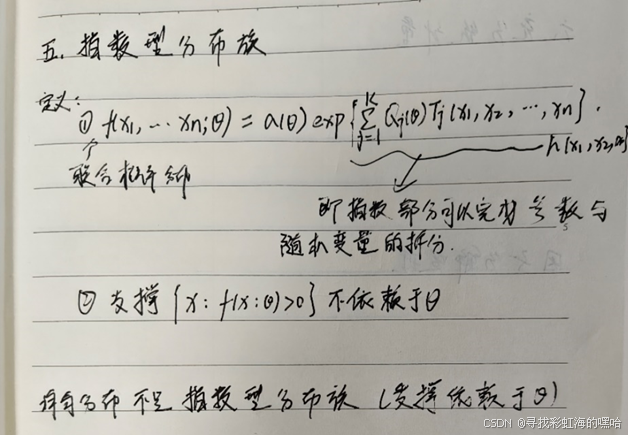 五. 指数型分布族
定义:
① f(x₁, … xn;θ) = a(θ) exp{∑ⱼ₌₁ᴷ Qj(θ)Tj(x₁,x₂,…,xn)}.
h(x₁,x₂,
联合
即指数部分可以完成参数与
随机变量的拆分.
② 支撑{x: f(x:θ)>0}不依赖于θ
分布不是指数型分布族 (支撑依赖于θ)
CSDN @寻找彩虹海的嘿哈